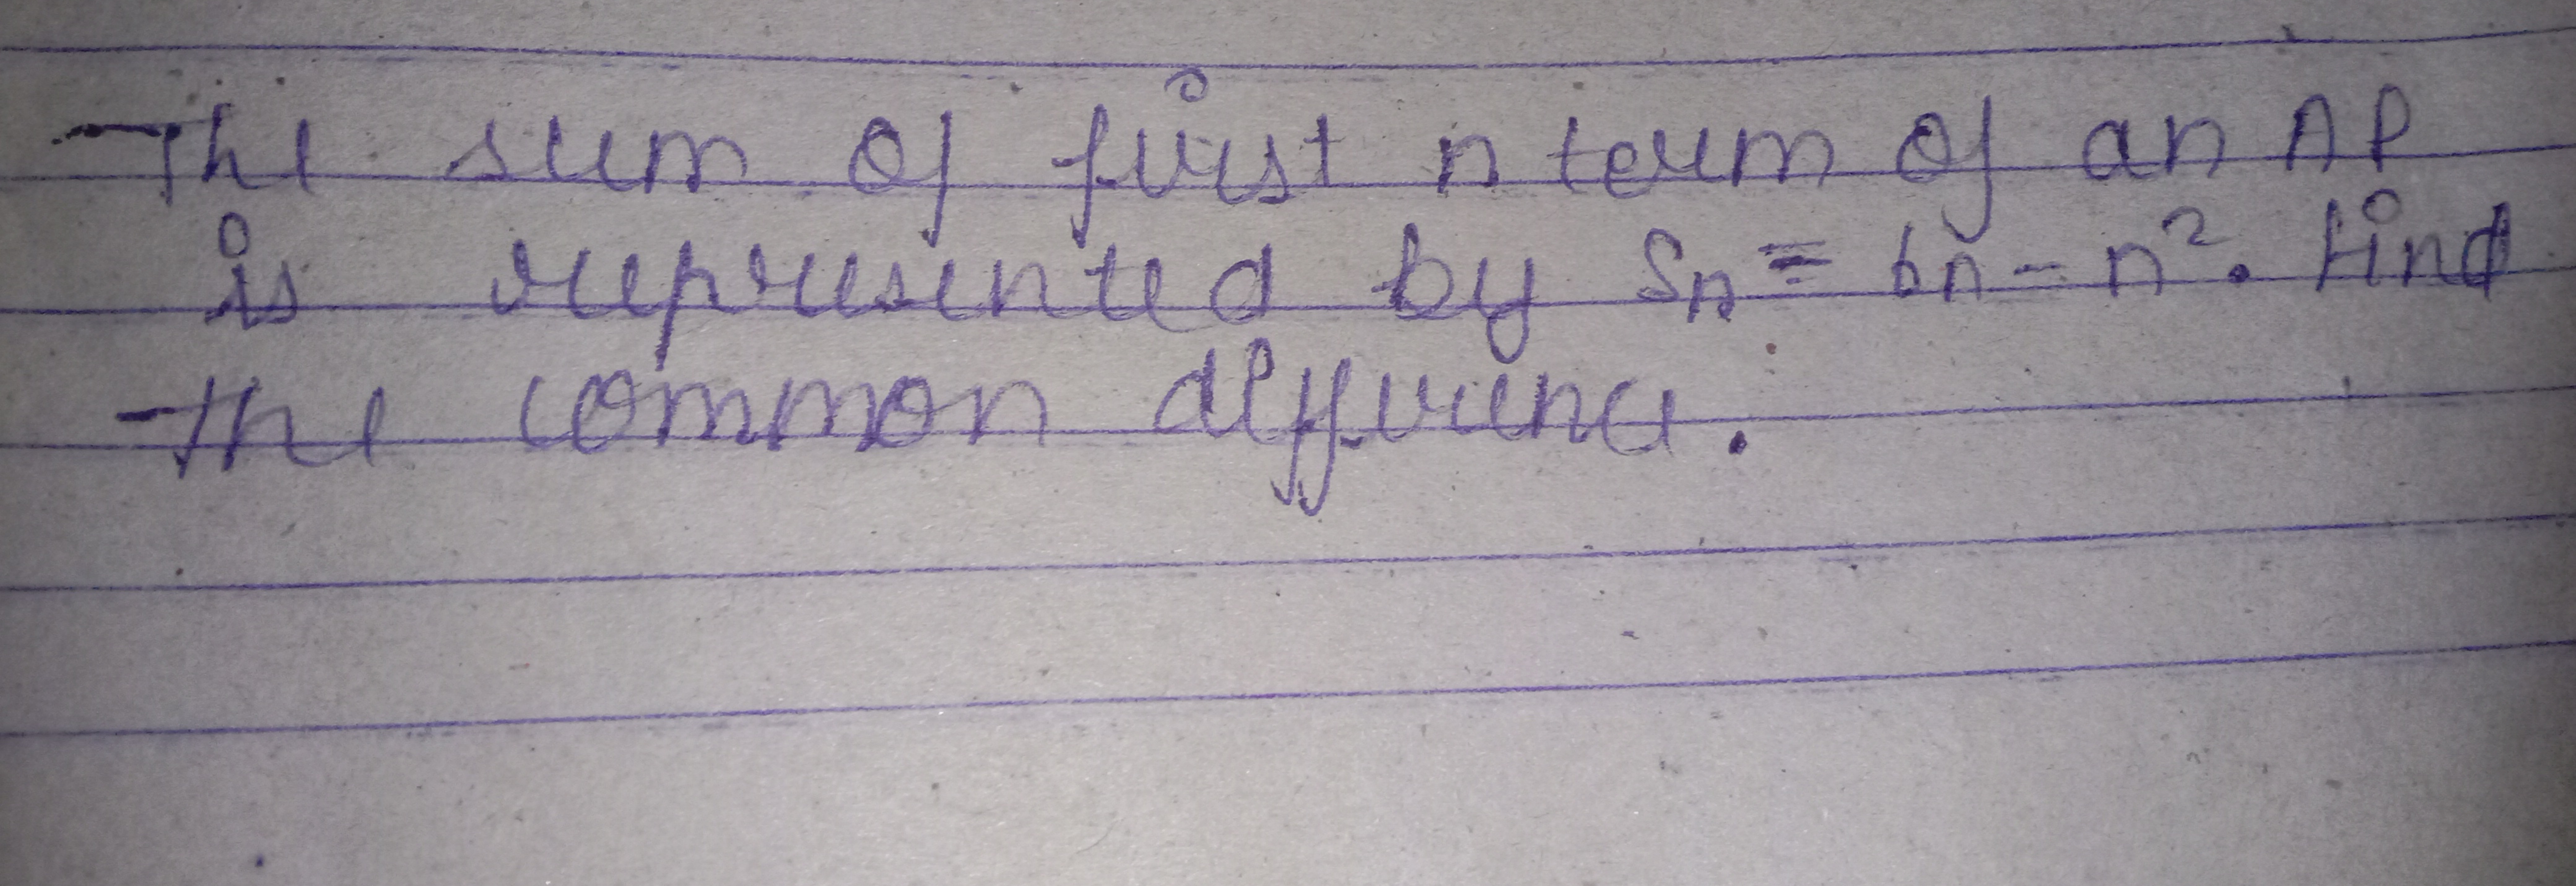 The sum of first n term of an AP
is represented by Sn = 6n - n². Find
the common difference.